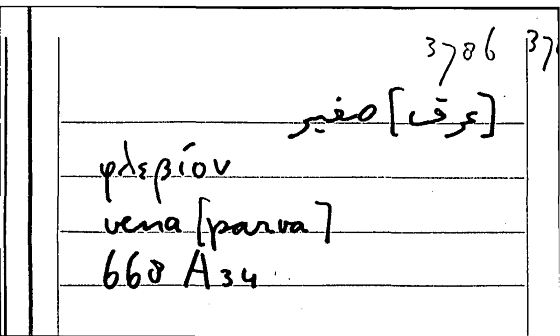 3786 37
[عرق] صغير
φλεβίον
vena [parva]
668 A 34